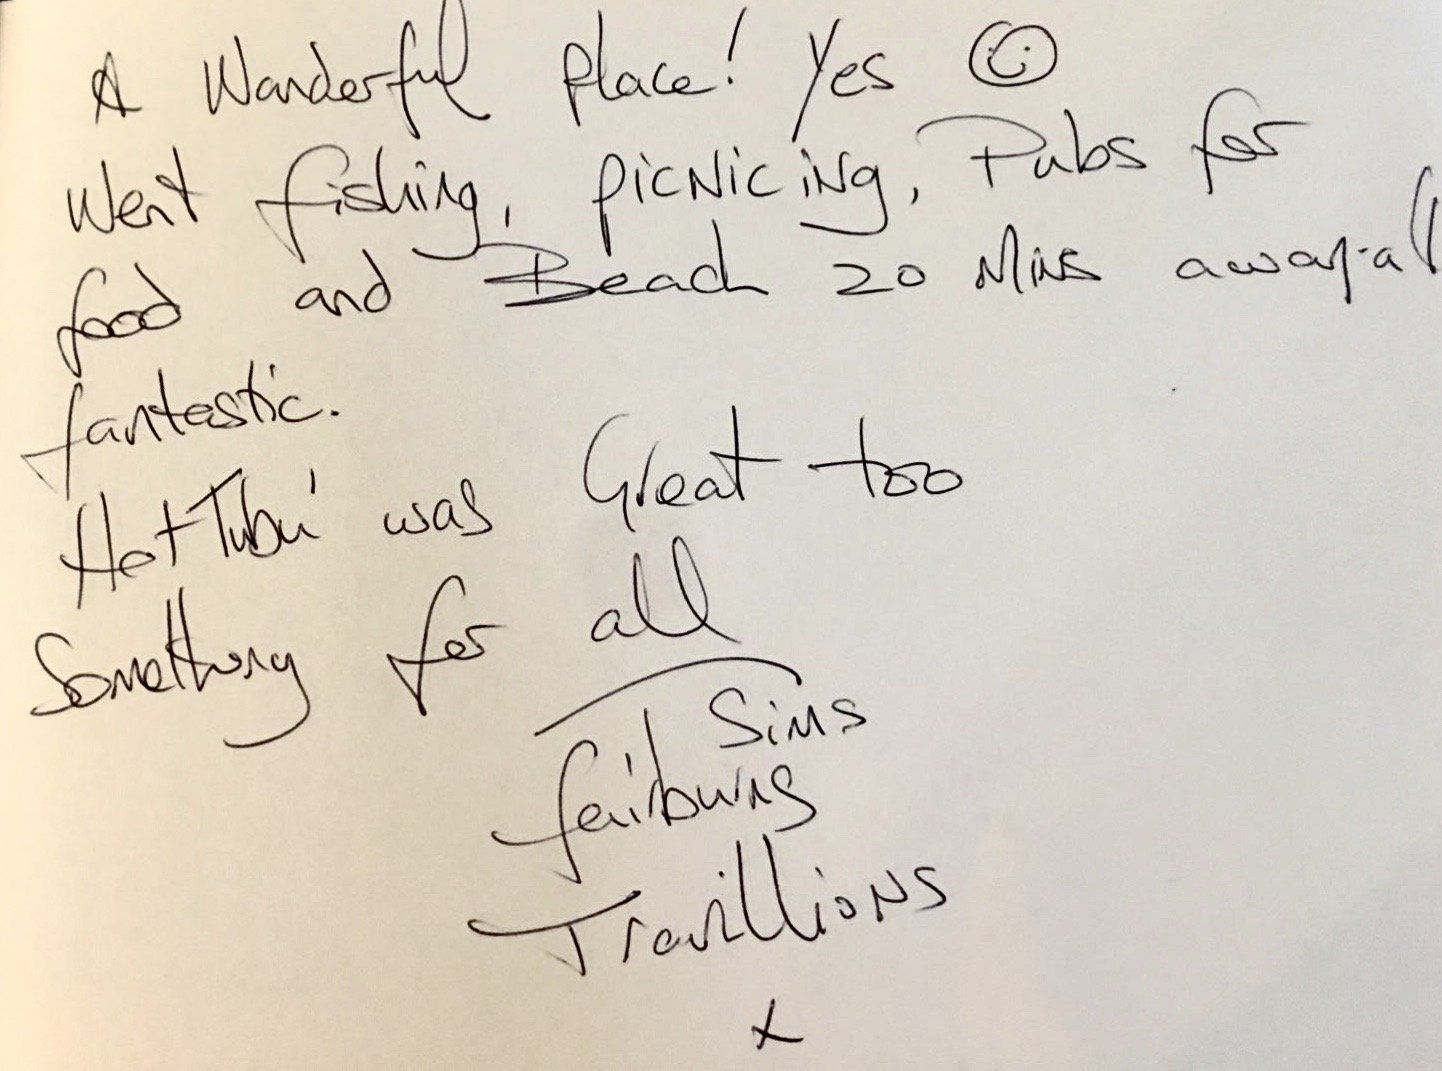 A Wonderful place! Yes ☺
Went fishing, picnicing, Pubs for
food and Beach 20 Mins away-all
fantastic.
'Hot Tubin' was Great too
Something for all
Sims
fairburns
Travillions
x